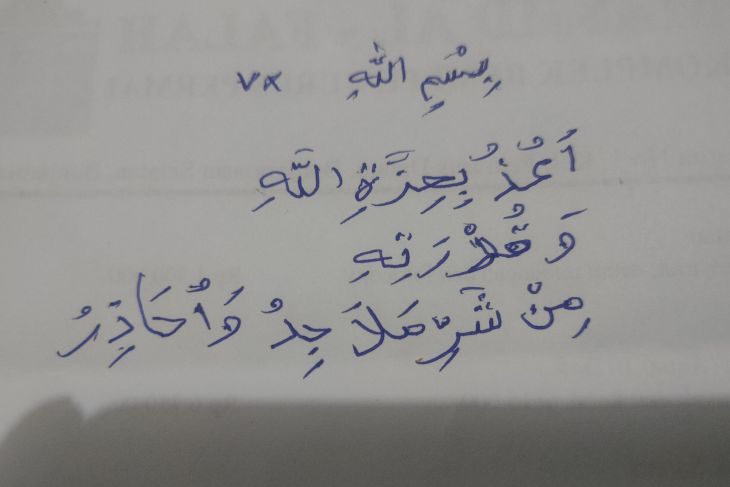 بِسْمِ اللّٰهِ ٧x
أَعُذُ بِعِزَّةِ اللَّهِ
وَ قُدْرَتِهِ
مِنْ شَرِّ مَلاَ جِدُ وَأُحَاذِرُ